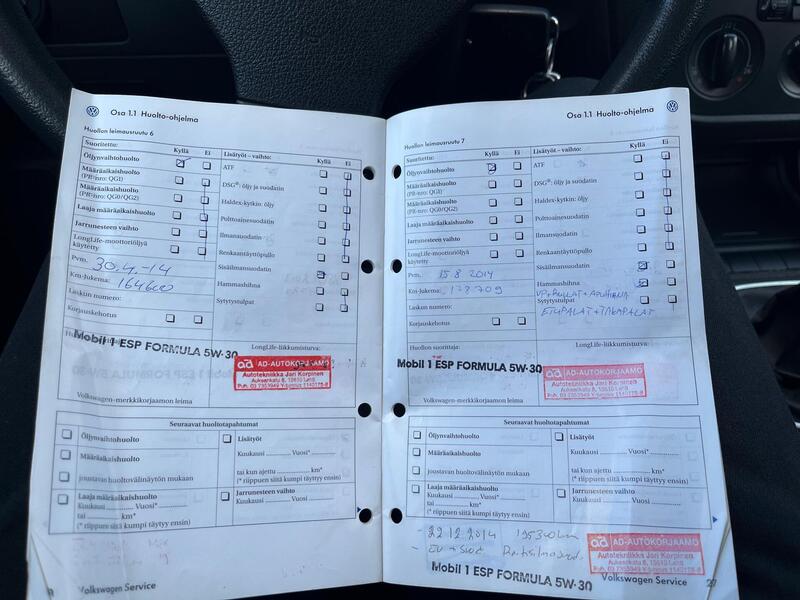 Osa 1.1 Huolto-ohjelma
Huollon leimausruutu 6
Suoritettu: Kyllä Ei
Öljynvaihtohuolto
Määräaikaishuolto
(PR-nro: QG1)
Määräaikaishuolto
(PR-nro: QG0/QG2)
Laaja määräaikaishuolto
Jarrunesteen vaihto
LongLife-moottoriöljyä
käytetty
Pvm. 30.4.-14
Km-lukema: 164600
Laskun numero:
Korjauskehotus
Lisätyöt – vaihto: Kyllä Ei
ATF
DSG®: öljy ja suodatin
Haldex-kytkin: öljy
Polttoainesuodatin
Ilmansuodatin
Renkaantäyttöpullo
Sisäilmansuodatin
Hammashihna
Sytytystulpat
LongLife-liikkumisturva:
Mobil 1 ESP FORMULA 5W-30
ad AD-AUTOKORJAAMO
Autotekniikka Jari Korpinen
Volkswagen-merkkikorjaamon leima
Seuraavat huoltotapahtumat
Öljynvaihtohuolto
Määräaikaishuolto
joustavan huoltovälinäytön mukaan
Laaja määräaikaishuolto
Kuukausi ............ Vuosi*
tai ............ km*
(* riippuen siitä kumpi täyttyy ensin)
Lisätyöt
Kuukausi ............ Vuosi*
tai kun ajettu ............ km*
(* riippuen siitä kumpi täyttyy ensin)
Jarrunesteen vaihto
Kuukausi ............ Vuosi ............
Volkswagen Service
Osa 1.1 Huolto-ohjelma
Huollon leimausruutu 7
Suoritettu: Kyllä Ei
Öljynvaihtohuolto
Määräaikaishuolto
(PR-nro: QG1)
Määräaikaishuolto
(PR-nro: QG0/QG2)
Laaja määräaikaishuolto
Jarrunesteen vaihto
LongLife-moottoriöljyä
käytetty
Pvm. 15.8 2014
Km-lukema:
Laskun numero:
Korjauskehotus
Huollon suorittaja:
Lisätyöt – vaihto: Kyllä Ei
ATF
DSG®: öljy ja suodatin
Haldex-kytkin: öljy
Polttoainesuodatin
Ilmansuodatin
Renkaantäyttöpullo
Sisäilmansuodatin
Hammashihna
Sytytystulpat
ETUPALAT + TAKAPALAT
LongLife-liikkumisturva:
Mobil 1 ESP FORMULA 5W-30
ad AD-AUTOKORJAAMO
Autotekniikka Jari Korpinen
Volkswagen-merkkikorjaamon leima
Seuraavat huoltotapahtumat
Öljynvaihtohuolto
Määräaikaishuolto
joustavan huoltovälinäytön mukaan
Laaja määräaikaishuolto
Kuukausi ............ Vuosi*
tai ............ km*
(* riippuen siitä kumpi täyttyy ensin)
Lisätyöt
Kuukausi ............ Vuosi*
tai kun ajettu ............ km*
(* riippuen siitä kumpi täyttyy ensin)
Jarrunesteen vaihto
Kuukausi ............ Vuosi ............
- 22.12.2014 195340km
ad AD-AUTOKORJAAMO
Autotekniikka Jari Korpinen
Mobil 1 ESP FORMULA 5W-30
Volkswagen Service 27